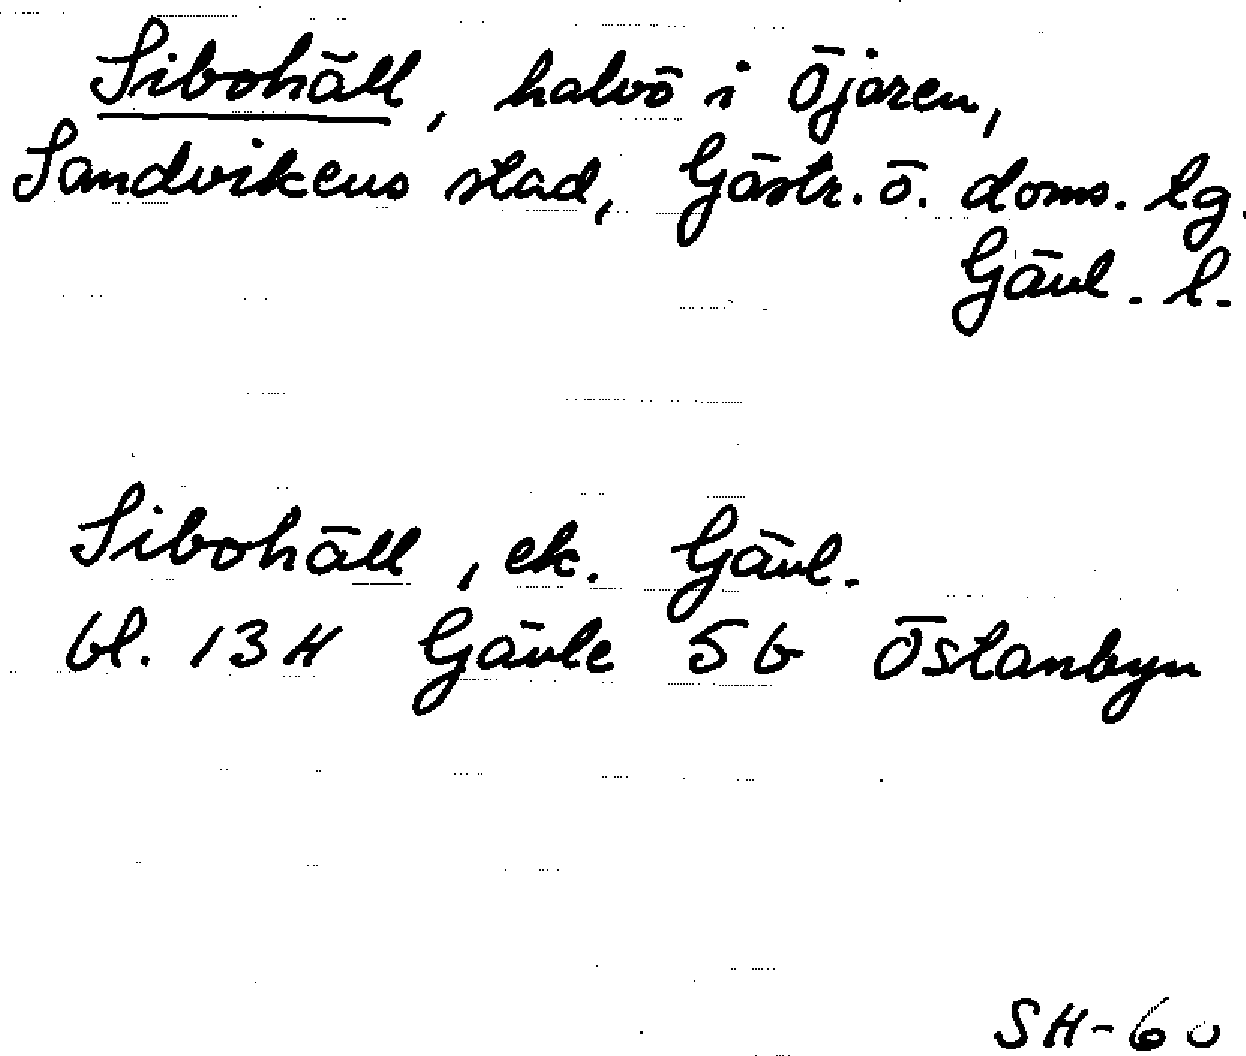 Sibohäll, halvö i Öjaren,
Sandvikens stad, Gästr. ö. doms. lg.
Gävl. l.
Sibohäll, ek. Gävl.
bl. 13 H Gävle 5 b Östanbyn
SH-60